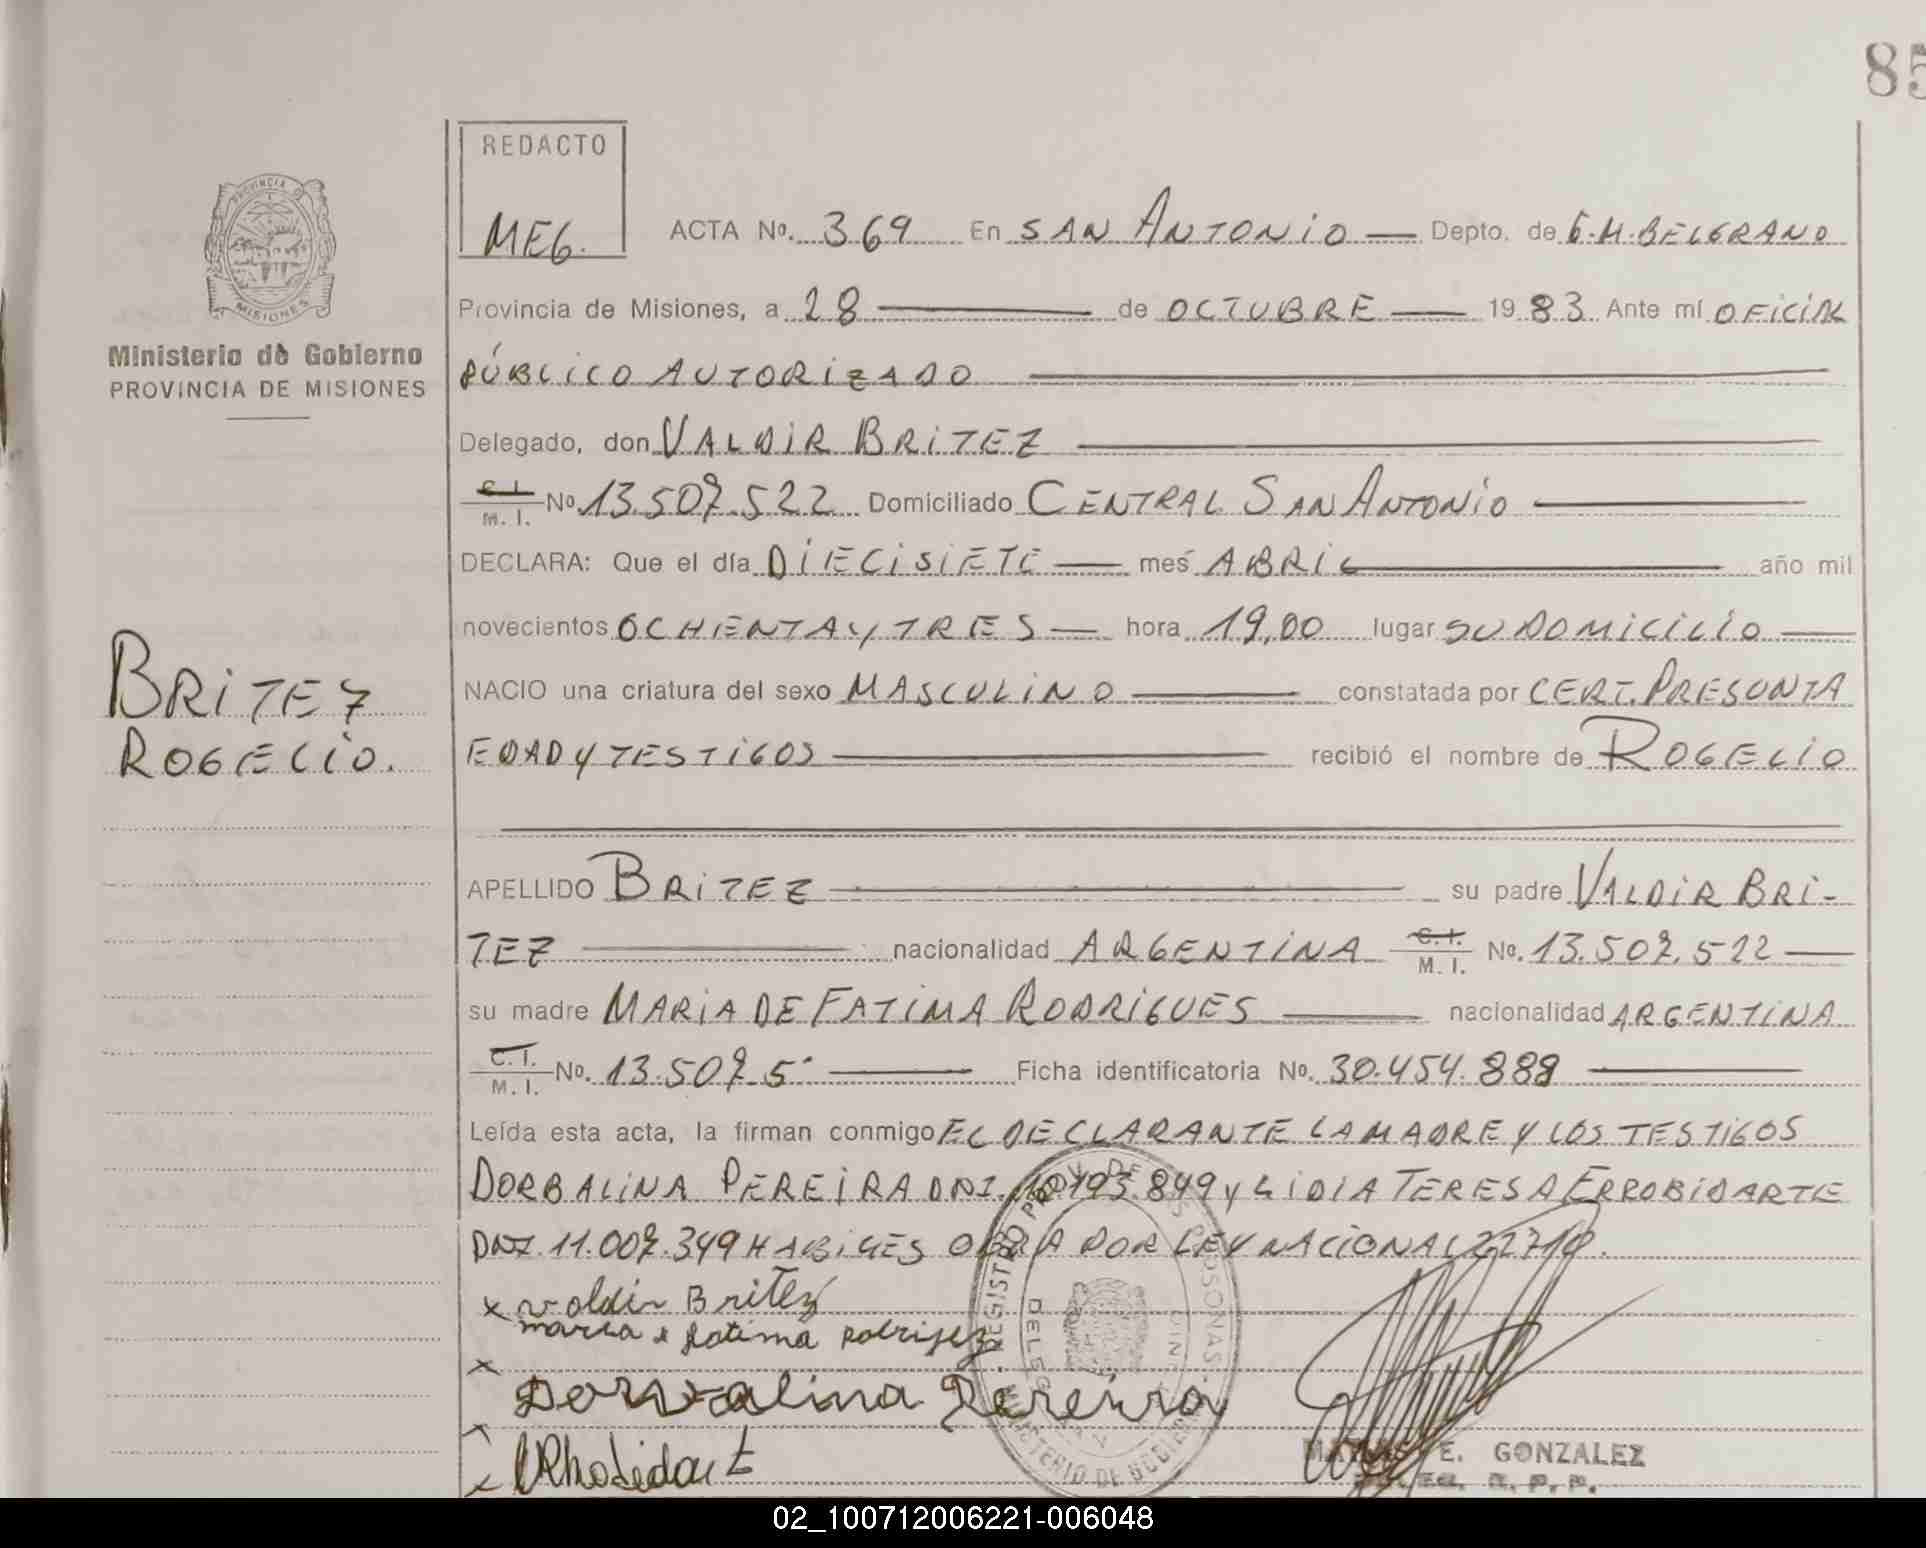 85
REDACTO
MEG.
PROVINCIA D
MISIONES
Ministerio de Gobierno
PROVINCIA DE MISIONES
ACTA Nº. 369 En SAN ANTONIO — Depto. de G.M.BELGRANO
Provincia de Misiones, a 28 — de OCTUBRE — 19 83 Ante mí OFICIAL
PÚBLICO AUTORIZADO —
Delegado, don VALDIR BRITEZ —
C. I. / M. I. Nº 13.507.522 Domiciliado CENTRAL SAN ANTONIO —
DECLARA: Que el día DIECISIETE — mes ABRIL — año mil
novecientos OCHENTA Y TRES — hora 19,00 lugar SU DOMICILIO —
BRITEZ
ROGELIO.
NACIO una criatura del sexo MASCULINO — constatada por CERT. PRESUNTA
EDAD Y TESTIGOS — recibió el nombre de ROGELIO
APELLIDO BRITEZ — su padre VALDIR BRI-
TEZ — nacionalidad ARGENTINA C. I. / M. I. Nº. 13.507.522 —
su madre MARIA DE FATIMA RODRIGUES — nacionalidad ARGENTINA
C. I. / M. I. Nº. 13.507.5 — Ficha identificatoria Nº. 30.454.888 —
Leída esta acta, la firman conmigo EL DECLARANTE LA MADRE Y LOS TESTIGOS
DORBALINA PEREIRA DNI. 849 y LIDIA TERESA ERROBIDARTE
DNI. 11.007.349 HABILES LEY NACIONAL
x Valdir Britez
maria fatima rodriguez
x
Dorvalina Pereira
x
x
REGISTRO PROV. DE PERSONAS
MINISTERIO DE GOBIERNO
E. GONZALEZ
02_100712006221-006048